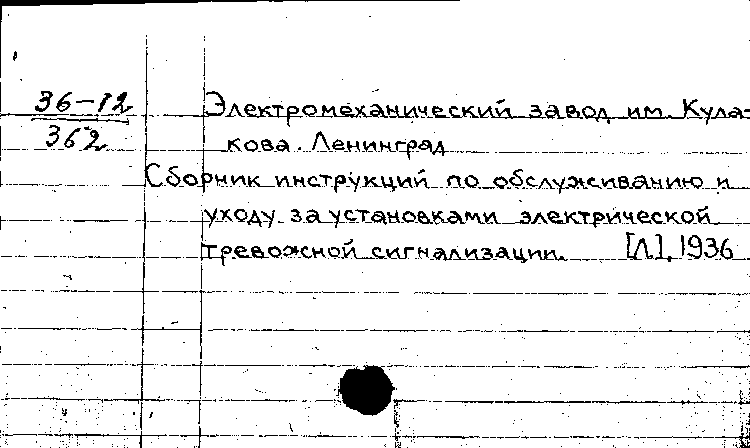 36-12
362
Электромеханический завод им. Кула-
кова. Ленинград
Сборник инструкций по обслуживанию и
уходу за установками электрической
тревожной сигнализации. [Л.], 1936